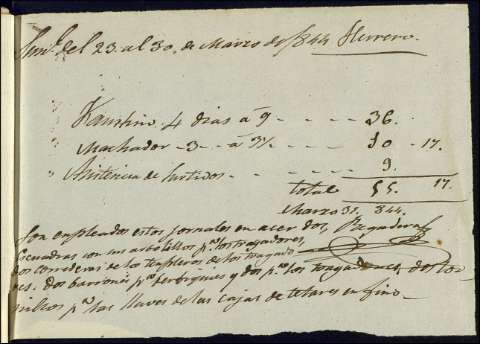 Semª del 23 al 30 de Marzo de 1844 Herrero.
" Faustino 4 dias á 9 - - - - 36.
" Machador - 3 - - á 3½ - - - 10 - 17.
" Asistencia de surtidos - - - - - 9.
total 55. 17.
Marzo 31. 844.
Son empleados estos jornales en acer dos,
escuadras con sus arbolillos pª los tragadores,
dos correderas de los templeros de los
dos barrones pª berbiquies y dos pª los dos tor
nillos pª las llaves de las cajas de telares en fino —